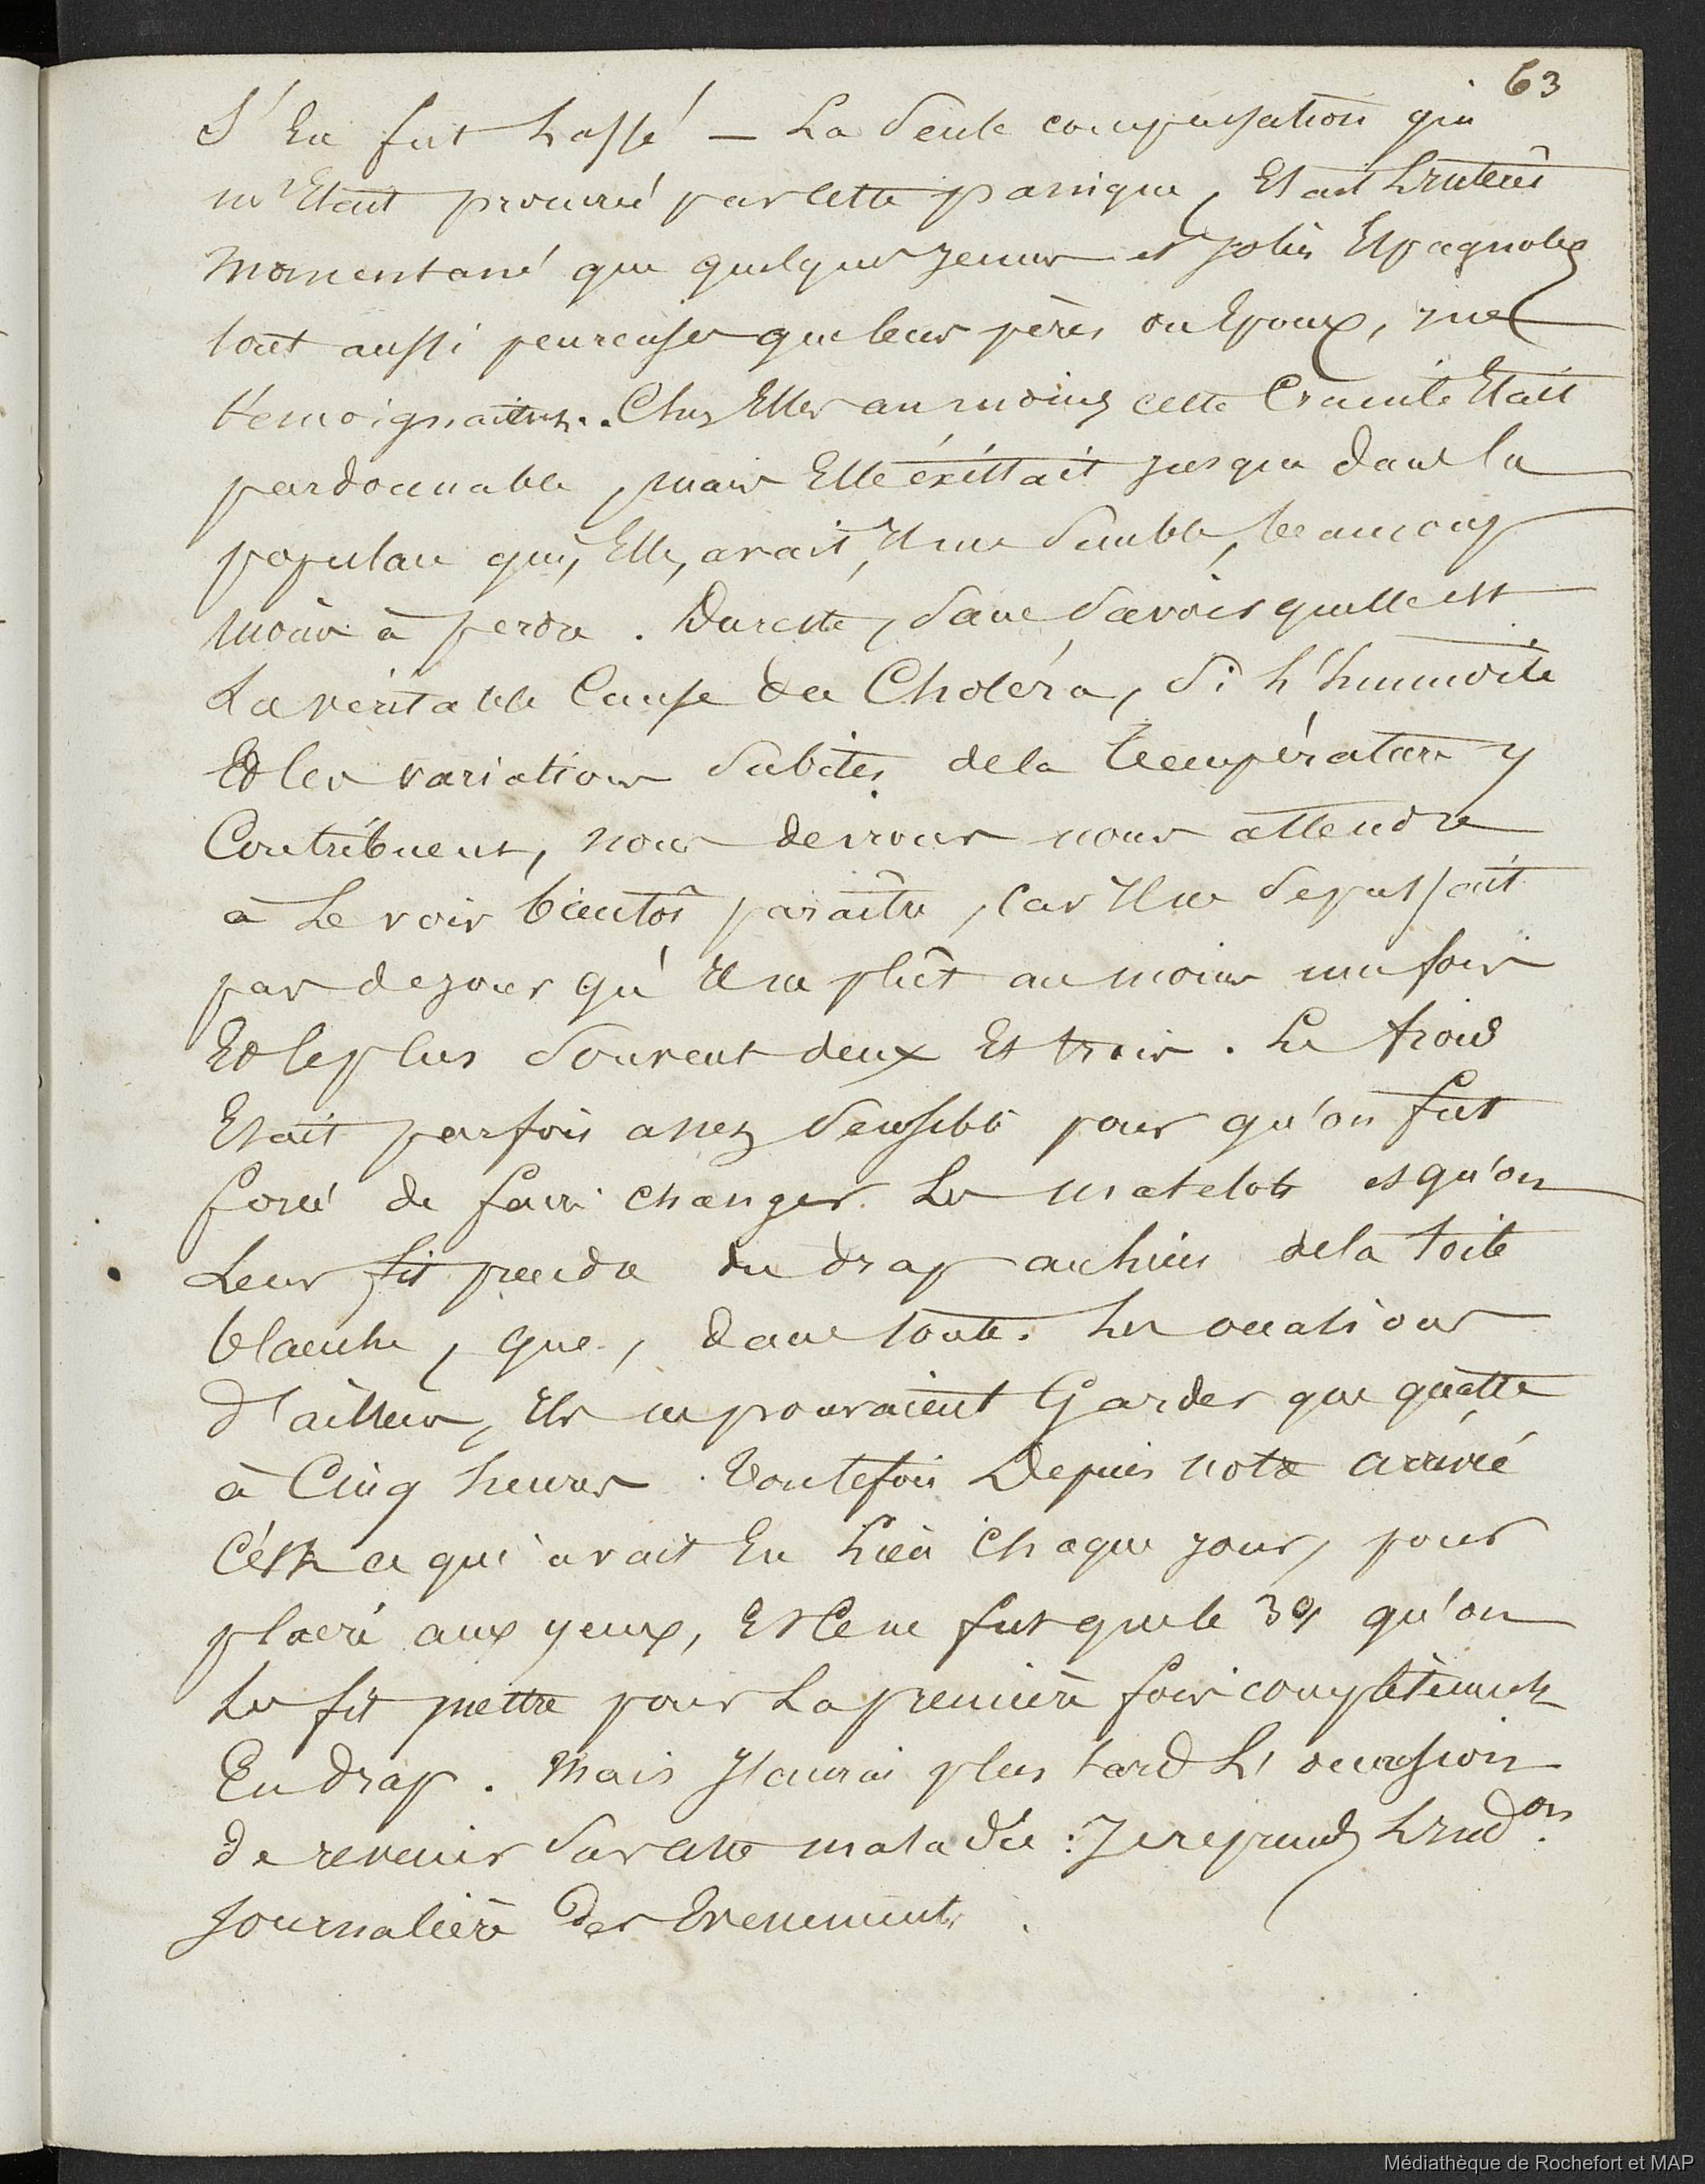 63
S'En fut Lassé — La Seule compensation qui
m'Etait procuré par Cette panique, Etait L'intérêt
momentané que quelques jeunes et jolies Espagnoles
tout aussi peureuses que leurs pères ou Epoux, me
témoignaient. Chez Elles au moins cette Crainte Etait
pardonnable, mais Elle éxistait jusque dans la
populace qui, Elle, avait, Il me Semble, beaucoup
moins à perdre. Dureste, Sans Savoir quelle est
La véritable Cause du Choléra, Si L'humidité
Et les variations Subites de la Température y
Contribuent, nous devrons nous attendre
à Le voir bientôt paraître, Car Il ne Se passait
pas de jour qu'Il ne plût au moins une fois
Et le plus Souvent deux Et trois. Le froid
Etait parfois assez Sensible pour qu'on fut
forcé de faire changer Les matelots et qu'on
Leur fit prendre du drap au lieu de la toile
blanche, que, dans toutes Les occasions
d'ailleurs, Ils ne pouvaient Garder que quatre
à Cinq heures. Toutefois Depuis notre arrivée
C'est ce qui avait Eu Lieu Chaque jour, pour
plaire aux yeux, Et Ce ne fut que le 39 qu'on
Les fit mettre pour La première fois complètement
En drap. Mais J'aurai plus tard L'occasion
de revenir Sur Cette maladie : Je reprends L'ind.on
Journalière Des Evenements.
Médiathèque de Rochefort et MAP